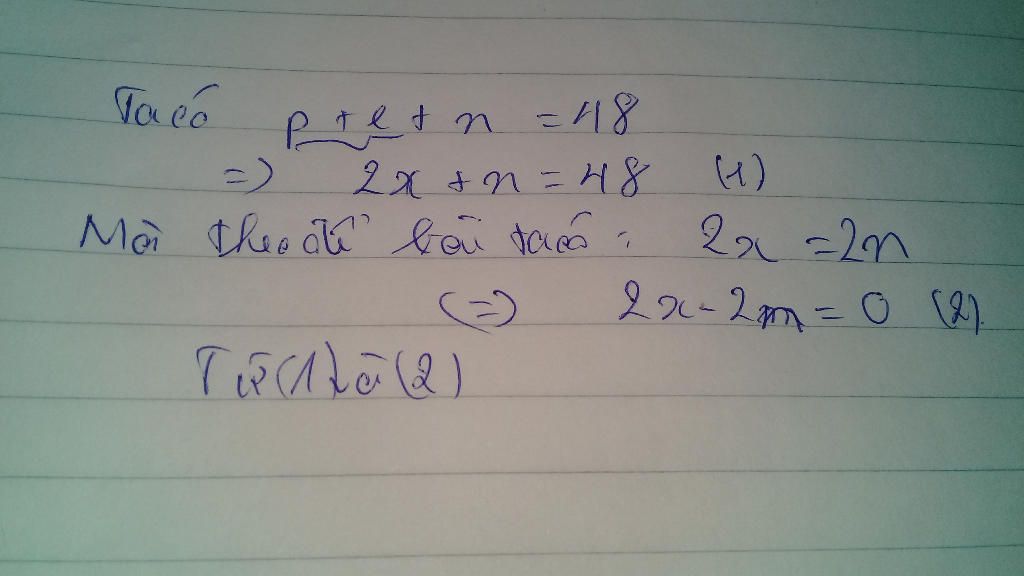 Ta có p + e + n = 48
=> 2x + n = 48 (1)
Mà theo đề bài ta có : 2x = 2n
(=) 2x - 2n = 0 (2).
Từ (1) và (2)